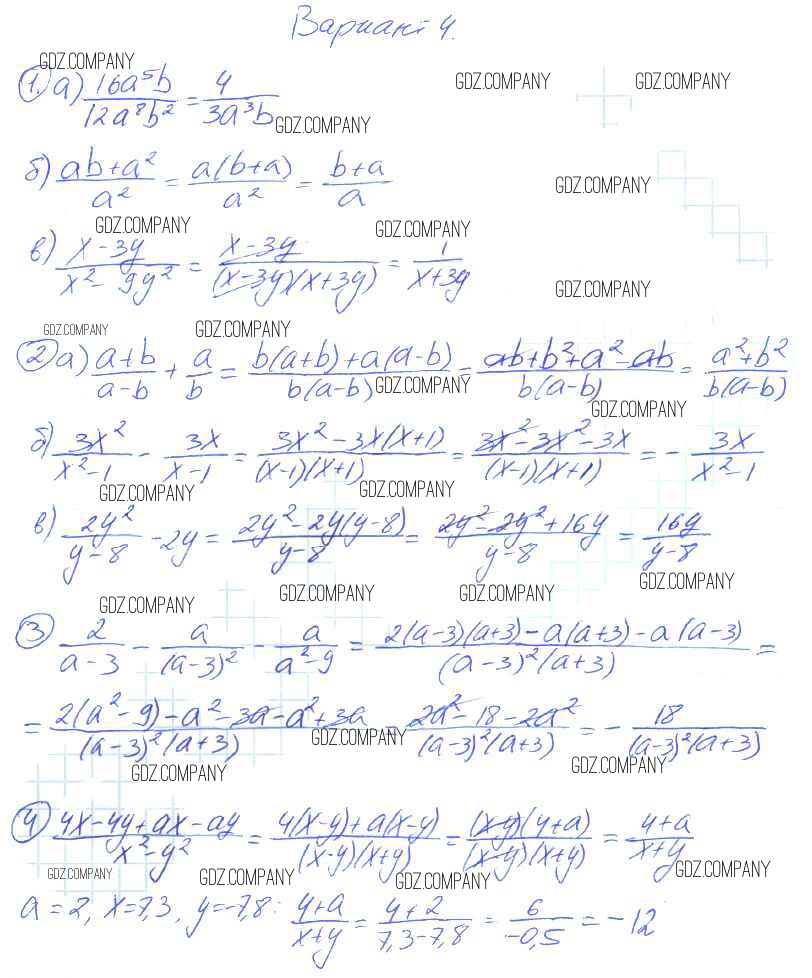 Вариант 4.
GDZ.COMPANY
1. а) 16a⁵b / 12a⁸b² = 4 / 3a³b
GDZ.COMPANY GDZ.COMPANY
GDZ.COMPANY
б) ab+a² / a² = a(b+a) / a² = b+a / a
GDZ.COMPANY
GDZ.COMPANY GDZ.COMPANY
в) x-3y / x²-9y² = x-3y / (x-3y)(x+3y) = 1 / x+3y
GDZ.COMPANY
GDZ.COMPANY GDZ.COMPANY
2 а) a+b / a-b + a / b = b(a+b)+a(a-b) / b(a-b) = ab+b²+a²-ab / b(a-b) = a²+b² / b(a-b)
GDZ.COMPANY
GDZ.COMPANY
б) 3x² / x²-1 - 3x / x-1 = 3x²-3x(x+1) / (x-1)(x+1) = 3x²-3x²-3x / (x-1)(x+1) = - 3x / x²-1
GDZ.COMPANY GDZ.COMPANY
в) 2y² / y-8 - 2y = 2y²-2y(y-8) / y-8 = 2y²-2y²+16y / y-8 = 16y / y-8
GDZ.COMPANY
GDZ.COMPANY GDZ.COMPANY GDZ.COMPANY
3 2 / a-3 - a / (a-3)² - a / a²-9 = 2(a-3)(a+3)-a(a+3)-a(a-3) / (a-3)²(a+3) =
= 2(a²-9)-a²-3a-a²+3a / (a-3)²(a+3) = 2a²-18-2a² / (a-3)²(a+3) = - 18 / (a-3)²(a+3)
GDZ.COMPANY
GDZ.COMPANY GDZ.COMPANY
4 4x-4y+ax-ay / x²-y² = 4(x-y)+a(x-y) / (x-y)(x+y) = (x-y)(4+a) / (x-y)(x+y) = 4+a / x+y
GDZ.COMPANY GDZ.COMPANY GDZ.COMPANY GDZ.COMPANY
a=2, x=7,3, y=-7,8: 4+a / x+y = 4+2 / 7,3-7,8 = 6 / -0,5 = -12